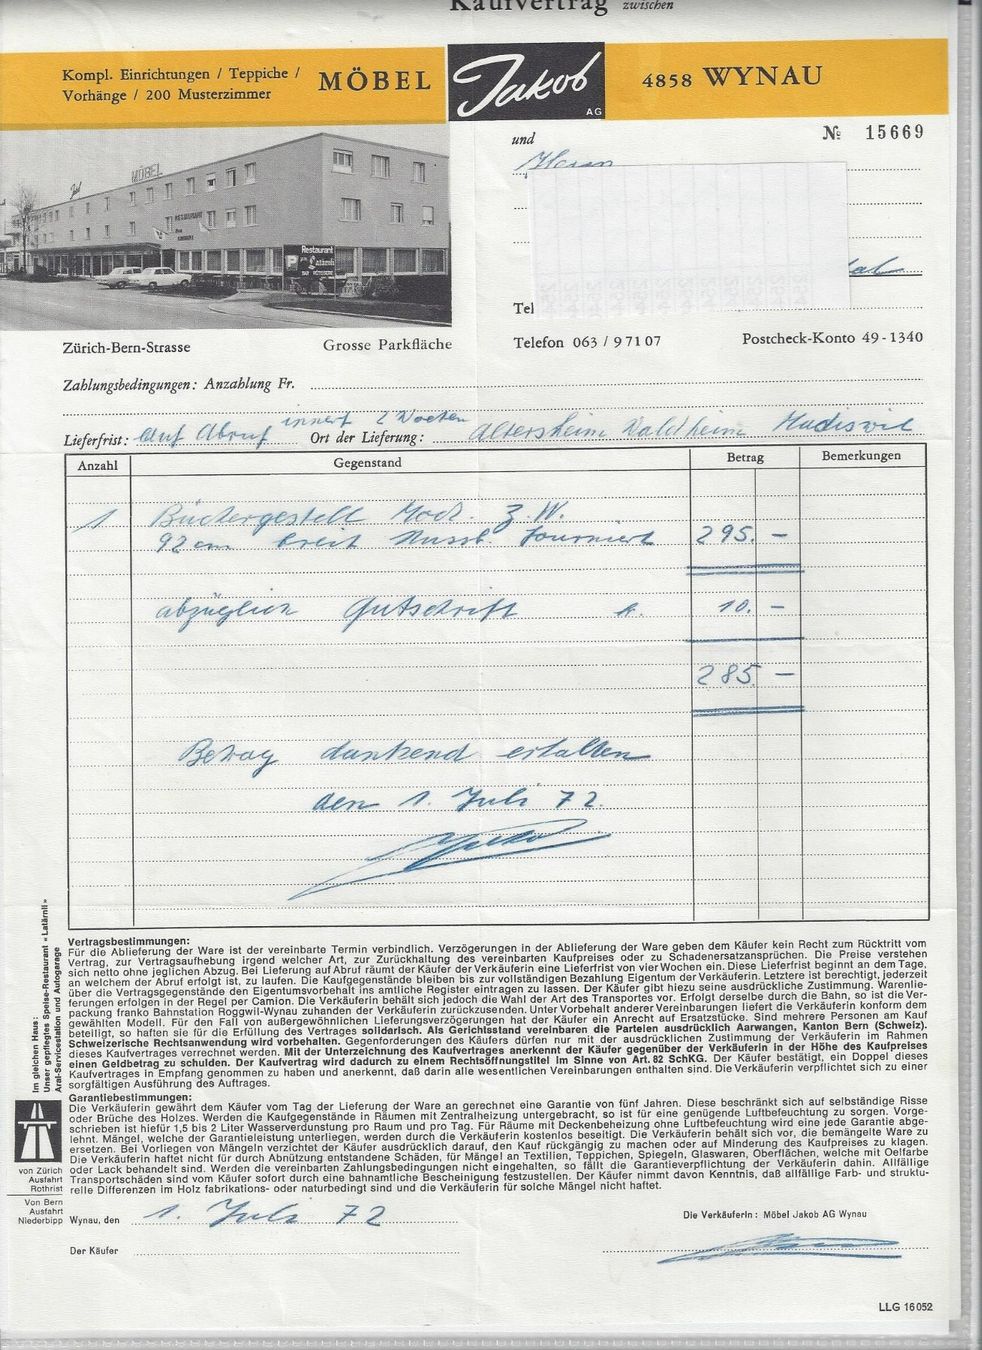 Kaufvertrag zwischen
Kompl. Einrichtungen / Teppiche /
Vorhänge / 200 Musterzimmer
MÖBEL
Jakob
AG
4858 WYNAU
und
№ 15669
Herrn
MÖBEL
RESTAURANT
Restaurant
P
Tel
Zürich-Bern-Strasse
Grosse Parkfläche
Telefon 063 / 9 71 07
Postcheck-Konto 49-1340
Zahlungsbedingungen: Anzahlung Fr.
Lieferfrist: auf Abruf innert 2 Wochen
Ort der Lieferung: Altersheim Waldheim Madiswil
Anzahl
Gegenstand
Betrag
Bemerkungen
1 Büchergestell Mod. Z. W.
92 cm breit Nussb. fourniert 295. —
abzüglich Gutschrift 10. —
285 —
Betrag dankend erhalten
den 1. Juli 72.
Vertragsbestimmungen:
Für die Ablieferung der Ware ist der vereinbarte Termin verbindlich. Verzögerungen in der Ablieferung der Ware geben dem Käufer kein Recht zum Rücktritt vom
Vertrag, zur Vertragsaufhebung irgend welcher Art, zur Zurückhaltung des vereinbarten Kaufpreises oder zu Schadenersatzansprüchen. Die Preise verstehen
sich netto ohne jeglichen Abzug. Bei Lieferung auf Abruf räumt der Käufer der Verkäuferin eine Lieferfrist von vier Wochen ein. Diese Lieferfrist beginnt an dem Tage,
an welchem der Abruf erfolgt ist, zu laufen. Die Kaufgegenstände bleiben bis zur vollständigen Bezahlung Eigentum der Verkäuferin. Letztere ist berechtigt, jederzeit
über die Vertragsgegenstände den Eigentumsvorbehalt ins amtliche Register eintragen zu lassen. Der Käufer gibt hiezu seine ausdrückliche Zustimmung. Warenlie-
ferungen erfolgen in der Regel per Camion. Die Verkäuferin behält sich jedoch die Wahl der Art des Transportes vor. Erfolgt derselbe durch die Bahn, so ist die Ver-
packung franko Bahnstation Roggwil-Wynau zuhanden der Verkäuferin zurückzusenden. Unter Vorbehalt anderer Vereinbarungen liefert die Verkäuferin konform dem
gewählten Modell. Für den Fall von außergewöhnlichen Lieferungsverzögerungen hat der Käufer ein Anrecht auf Ersatzstücke. Sind mehrere Personen am Kauf
beteiligt, so haften sie für die Erfüllung des Vertrages solidarisch. Als Gerichtsstand vereinbaren die Parteien ausdrücklich Aarwangen, Kanton Bern (Schweiz).
Schweizerische Rechtsanwendung wird vorbehalten. Gegenforderungen des Käufers dürfen nur mit der ausdrücklichen Zustimmung der Verkäuferin im Rahmen
dieses Kaufvertrages verrechnet werden. Mit der Unterzeichnung des Kaufvertrages anerkennt der Käufer gegenüber der Verkäuferin in der Höhe des Kaufpreises
einen Geldbetrag zu schulden. Der Kaufvertrag wird dadurch zu einem Rechtsöffnungstitel im Sinne von Art. 82 SchKG. Der Käufer bestätigt, ein Doppel dieses
Kaufvertrages in Empfang genommen zu haben und anerkennt, daß darin alle wesentlichen Vereinbarungen enthalten sind. Die Verkäuferin verpflichtet sich zu einer
sorgfältigen Ausführung des Auftrages.
Garantiebestimmungen:
Die Verkäuferin gewährt dem Käufer vom Tag der Lieferung der Ware an gerechnet eine Garantie von fünf Jahren. Diese beschränkt sich auf selbständige Risse
oder Brüche des Holzes. Werden die Kaufgegenstände in Räumen mit Zentralheizung untergebracht, so ist für eine genügende Luftbefeuchtung zu sorgen. Vorge-
schrieben ist hiefür 1,5 bis 2 Liter Wasserverdunstung pro Raum und pro Tag. Für Räume mit Deckenbeheizung ohne Luftbefeuchtung wird eine jede Garantie abge-
lehnt. Mängel, welche der Garantieleistung unterliegen, werden durch die Verkäuferin kostenlos beseitigt. Die Verkäuferin behält sich vor, die bemängelte Ware zu
ersetzen. Bei Vorliegen von Mängeln verzichtet der Käufer ausdrücklich daraufhin, den Kauf rückgängig zu machen oder auf Minderung des Kaufpreises zu klagen.
Die Verkäuferin haftet nicht für durch Abnützung entstandene Schäden, für Mängel an Textilien, Teppichen, Spiegeln, Glaswaren, Oberflächen, welche mit Oelfarbe
oder Lack behandelt sind. Werden die vereinbarten Zahlungsbedingungen nicht eingehalten, so fällt die Garantieverpflichtung der Verkäuferin dahin. Allfällige
Transportschäden sind vom Käufer sofort durch eine bahnamtliche Bescheinigung festzustellen. Der Käufer nimmt davon Kenntnis, daß allfällige Farb- und struktu-
relle Differenzen im Holz fabrikations- oder naturbedingt sind und die Verkäuferin für solche Mängel nicht haftet.
Im gleichen Haus:
Unser gepflegtes Speise-Restaurant «Latärnli»
Aral-Servicestation und Autogarage
von Zürich
Ausfahrt
Rothrist
Von Bern
Ausfahrt
Niederbipp
Wynau, den 1. Juli 72
Die Verkäuferin: Möbel Jakob AG Wynau
Der Käufer
LLG 16052